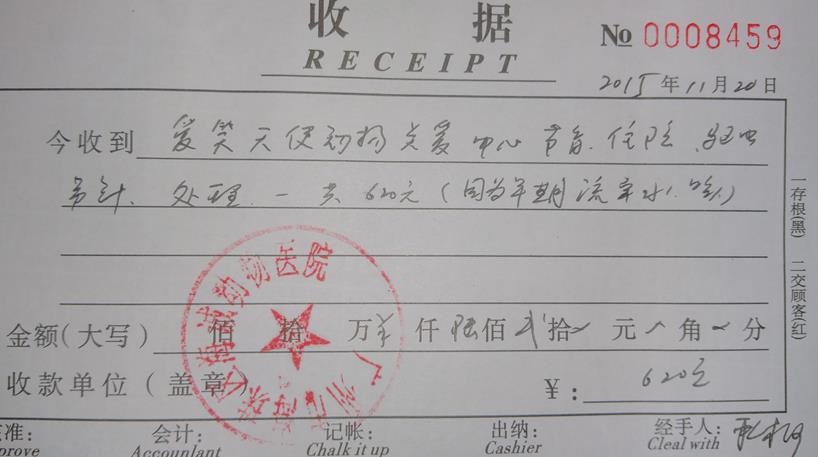 收 据
RECEIPT
No 0008459
2015年11月20日
今收到 爱笑天使动物关爱中心 节育.住院.驱虫
针. 处理. 一共620元(因为早期流
金额(大写) 佰 拾 万 羊 仟 陆佰 贰拾 元 角 分
收款单位(盖章) ¥: 620元
准: 会计: 记帐: 出纳: 经手人:
prove Accounlant Chalk it up Cashier Cleal with
一存根(黑) 二交顾客(红)
动物医院
广州市海珠